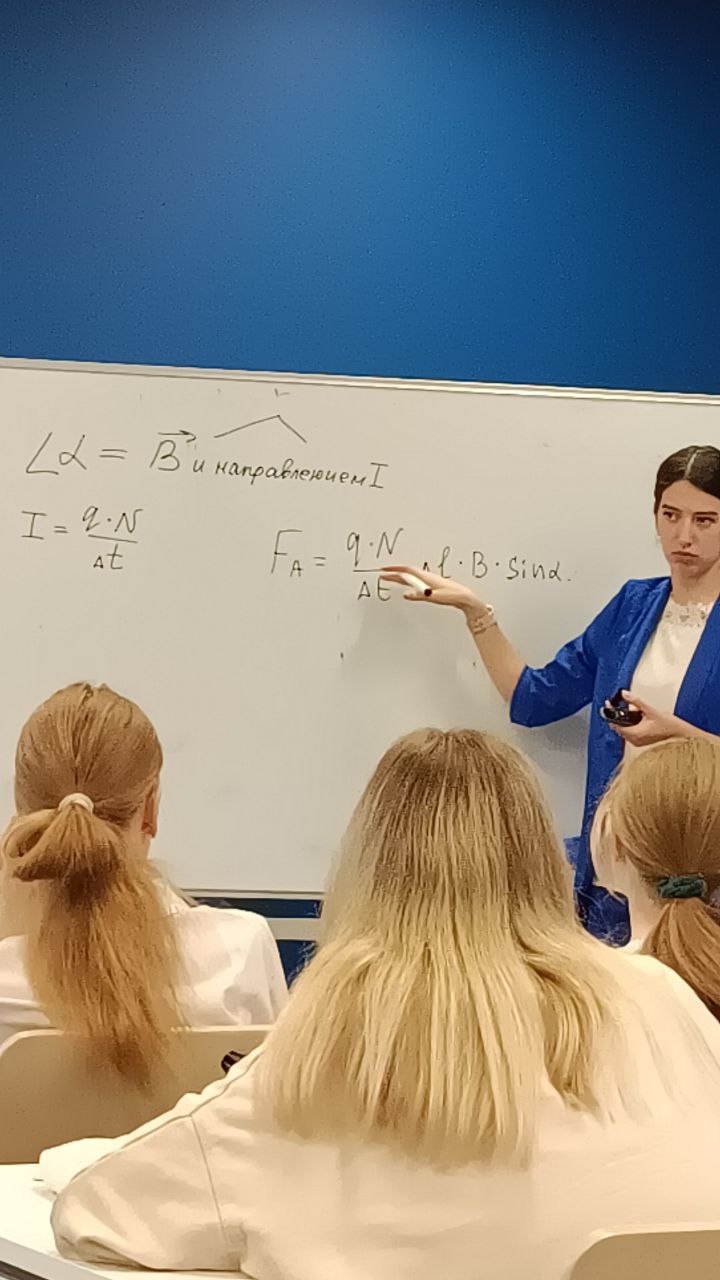 ∠α = B⃗ и направлением I
I = q·N/Δt
F_A = q·N/Δt Δl·B·sinα.